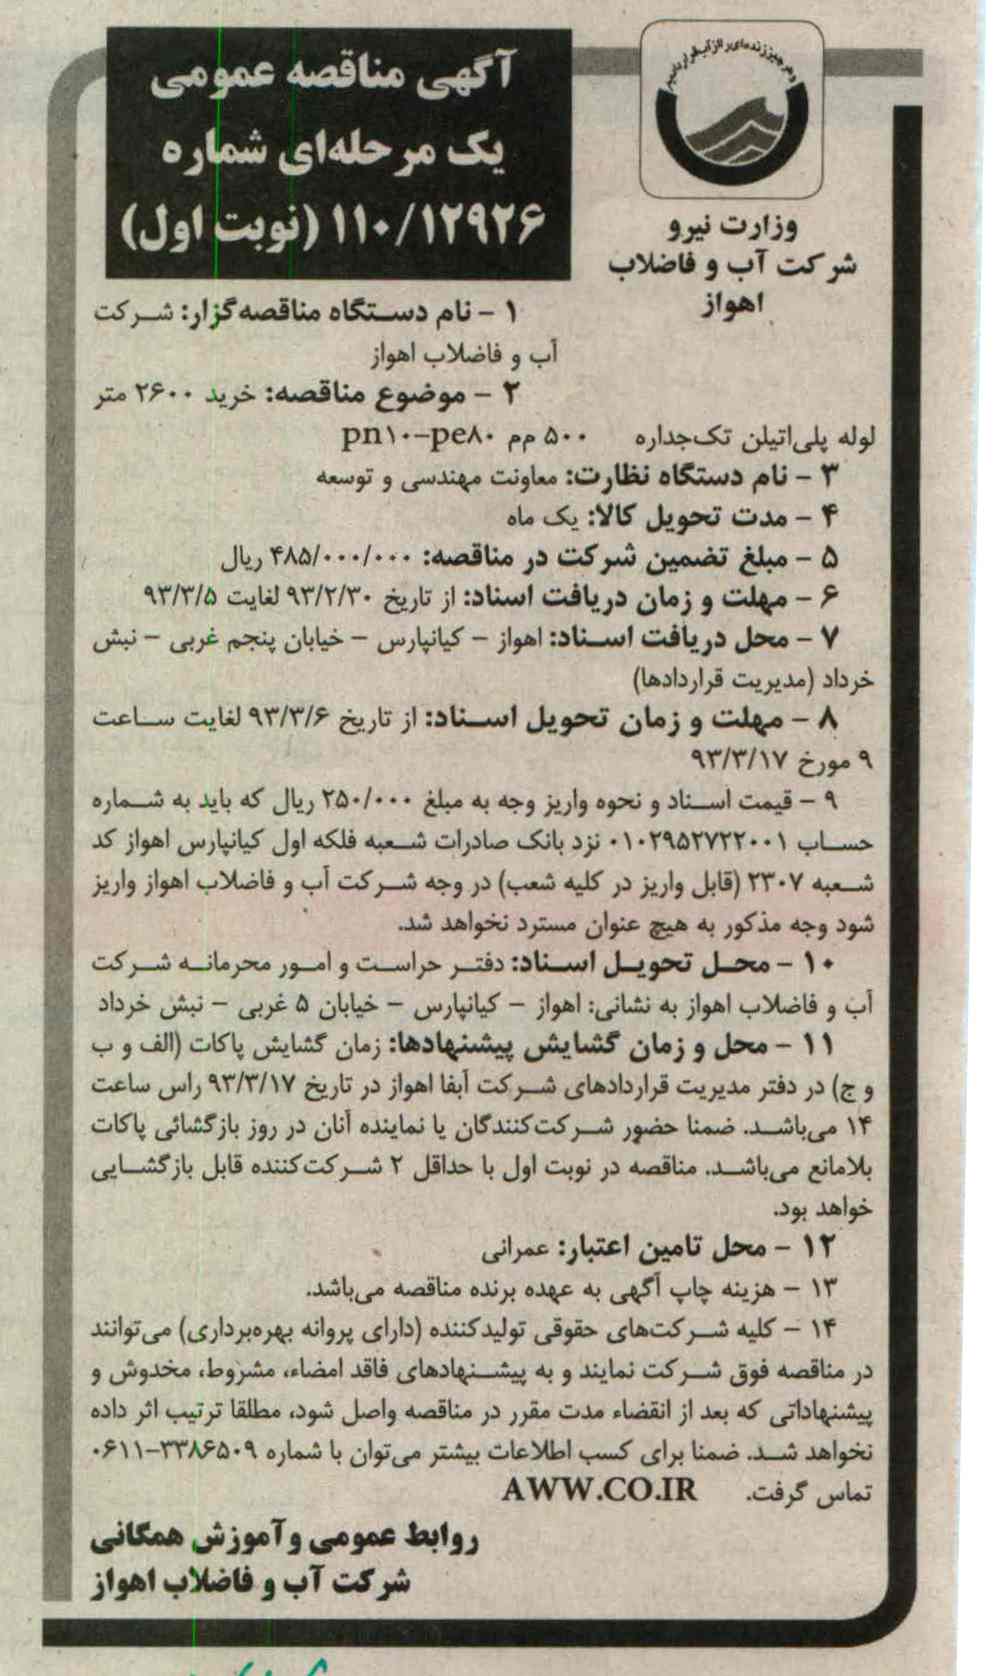 آگهی مناقصه عمومی
یک مرحله‌ای شماره
۱۱۰/۱۲۹۲۶ (نوبت اول)
وزارت نیرو
شرکت آب و فاضلاب
اهواز
۱ - نام دستگاه مناقصه‌گزار: شرکت
آب و فاضلاب اهواز
۲ - موضوع مناقصه: خرید ۲۶۰۰ متر
لوله پلی‌اتیلن تک‌جداره ۵۰۰ م‌م pn۱۰-pe۸۰
۳ - نام دستگاه نظارت: معاونت مهندسی و توسعه
۴ - مدت تحویل کالا: یک ماه
۵ - مبلغ تضمین شرکت در مناقصه: ۴۸۵/۰۰۰/۰۰۰ ریال
۶ - مهلت و زمان دریافت اسناد: از تاریخ ۹۳/۲/۳۰ لغایت ۹۳/۳/۵
۷ - محل دریافت اسناد: اهواز - کیانپارس - خیابان پنجم غربی - نبش
خرداد (مدیریت قراردادها)
۸ - مهلت و زمان تحویل اسناد: از تاریخ ۹۳/۳/۶ لغایت ساعت
۹ مورخ ۹۳/۳/۱۷
۹ - قیمت اسناد و نحوه واریز وجه به مبلغ ۲۵۰/۰۰۰ ریال که باید به شماره
حساب ۰۱۰۲۹۵۲۷۲۲۰۰۱ نزد بانک صادرات شعبه فلکه اول کیانپارس اهواز کد
شعبه ۲۳۰۷ (قابل واریز در کلیه شعب) در وجه شرکت آب و فاضلاب اهواز واریز
شود وجه مذکور به هیچ عنوان مسترد نخواهد شد.
۱۰ - محل تحویل اسناد: دفتر حراست و امور محرمانه شرکت
آب و فاضلاب اهواز به نشانی: اهواز - کیانپارس - خیابان ۵ غربی - نبش خرداد
۱۱ - محل و زمان گشایش پیشنهادها: زمان گشایش پاکات (الف و ب
و ج) در دفتر مدیریت قراردادهای شرکت آبفا اهواز در تاریخ ۹۳/۳/۱۷ راس ساعت
۱۴ می‌باشد. ضمنا حضور شرکت‌کنندگان یا نماینده آنان در روز بازگشائی پاکات
بلامانع می‌باشد. مناقصه در نوبت اول با حداقل ۲ شرکت‌کننده قابل بازگشایی
خواهد بود.
۱۲ - محل تامین اعتبار: عمرانی
۱۳ - هزینه چاپ آگهی به عهده برنده مناقصه می‌باشد.
۱۴ - کلیه شرکت‌های حقوقی تولیدکننده (دارای پروانه بهره‌برداری) می‌توانند
در مناقصه فوق شرکت نمایند و به پیشنهادهای فاقد امضاء، مشروط، مخدوش و
پیشنهاداتی که بعد از انقضاء مدت مقرر در مناقصه واصل شود، مطلقا ترتیب اثر داده
نخواهد شد. ضمنا برای کسب اطلاعات بیشتر می‌توان با شماره ۳۳۸۶۵۰۹-۰۶۱۱
تماس گرفت. AWW.CO.IR
روابط عمومی و آموزش همگانی
شرکت آب و فاضلاب اهواز